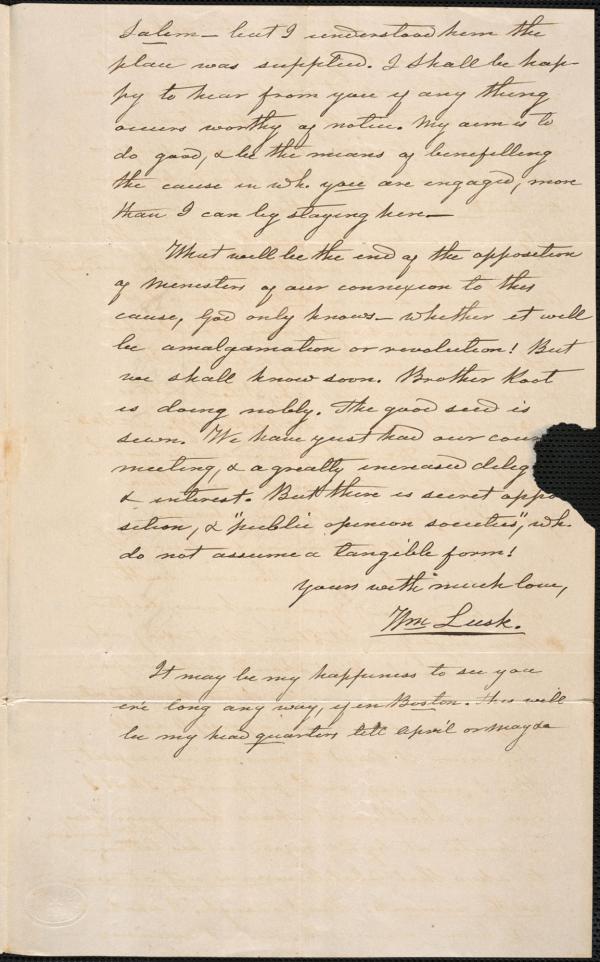 Salem — but I understood him the
place was supplied. I shall be hap-
py to hear from you if any thing
occurs worthy of notice. My aim is to
do good, & be the means of benefitting
the cause in wh. you are engaged, more
than I can by staying here —
What will be the end of the opposition
of ministers of our connexion to this
cause, God only knows — whether it will
be amalgamation or revolution! But
we shall know soon. Brother Root
is doing nobly. The good seed is
sewn. We have just had our coun
meeting, & a greatly increased deleg
& interest. But there is secret oppo
sition, & "public opinion societies", wh.
do not assume a tangible form!
Yours with much love,
Wm Lusk.
It may be my happiness to see you
ere long any way, if in Boston. This will
be my head quarters till April or May &c